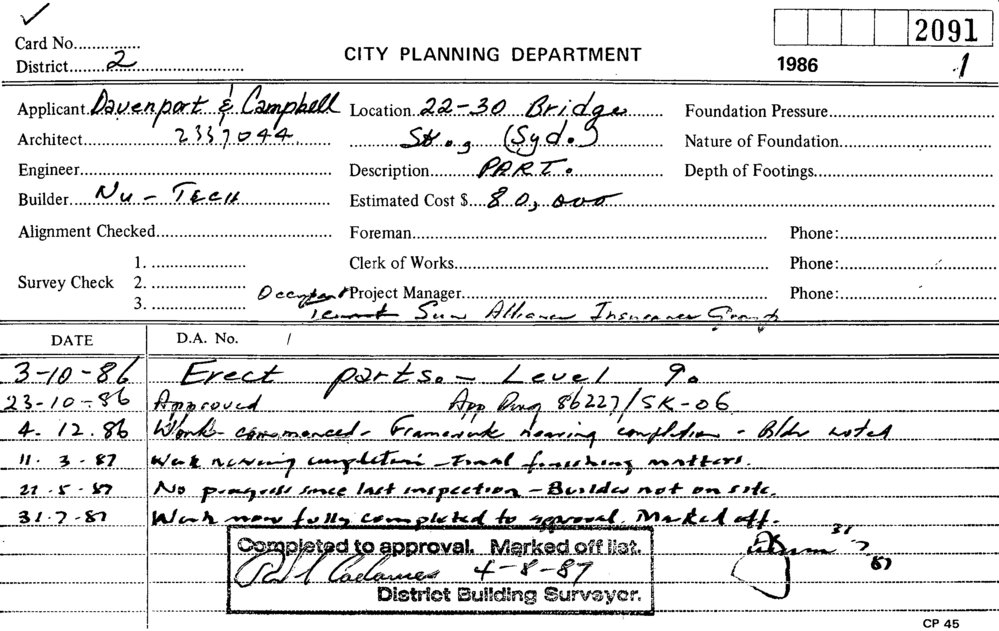 ✓
2091
Card No.
CITY PLANNING DEPARTMENT
District 2
1986
1
Applicant Davenport & Campbell Location 22-30 Bridge Foundation Pressure
Architect 2337044 St., (Syd.) Nature of Foundation
Engineer Description PART. Depth of Footings
Builder Nu-Tech Estimated Cost $ 80,000
Alignment Checked Foreman Phone:
1. Clerk of Works Phone:
Survey Check 2.
Occupant Project Manager Phone:
3.
Sun Alliance Insurance Group
DATE D.A. No. /
3-10-86 Erect parts. - Level 9.
23-10-86 Approved App Dwg 86227/SK-06
4.12.86 Work commenced - Framework nearing completion - Bldr noted
11.3-87 Work nearing completion - Final finishing matters.
21-5-87 No progress since last inspection - Builder not on site.
31-7-87 Work now fully completed to approval. Marked off.
31
7
87
Completed to approval. Marked off list.
4-8-87
District Building Surveyor.
CP 45